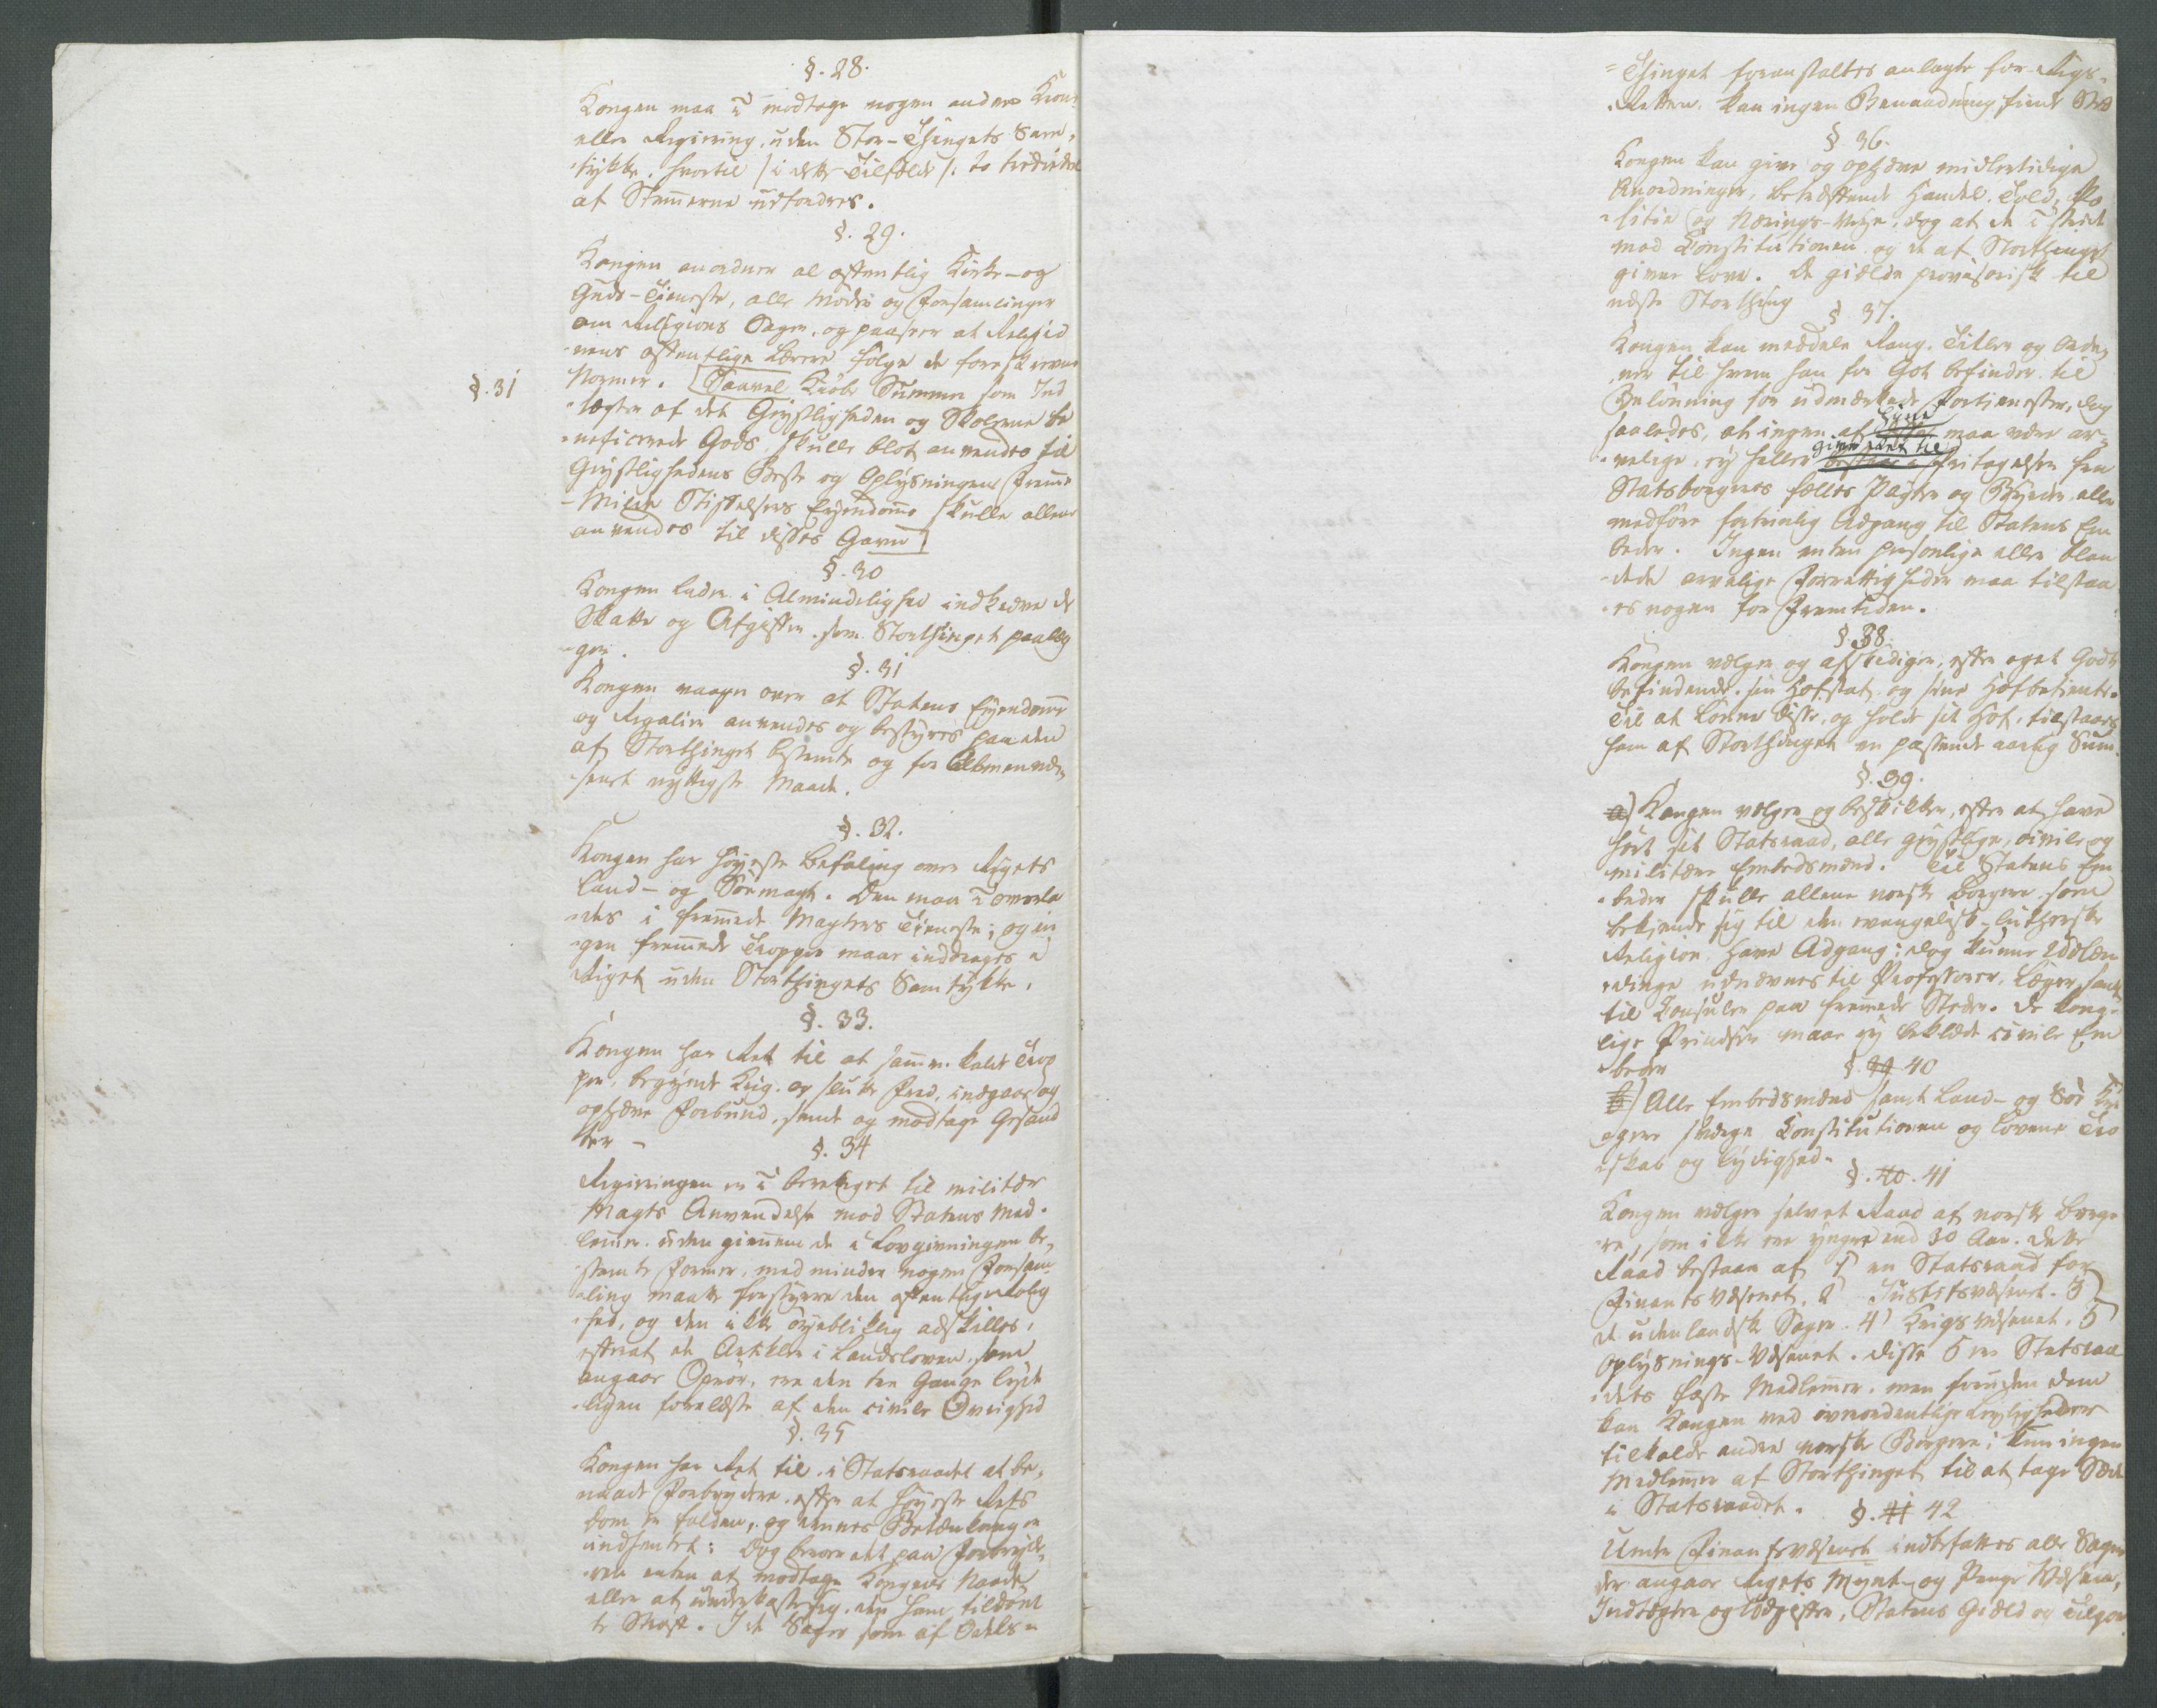 §. 28.
Kongen maa ei modtage nogen anden Krone
eller Regiering, uden Stor-Thingets Sam-
tykke, hvortil /: i dette Tilfælde :/ to trediedele
af Stemmerne udfordres.
§. 29.
Kongen anordner al offentlig Kirke- og
Guds-Tieneste, alle Møder og Forsamlinger
om Religions Sager, og paaseer at Religio
nens offentlige Lærere følge de foreskrevne
Normer. [Saavel Kiøbe Summer som Ind
§. 31
tægter af det Geistligheden og Skolerne be
neficerede Gods, skulle blot anvendes til
Geistlighedens Beste og Oplysningens Fremme
Milde Stiftelsers Eyendomme skulle allene
anvendes til disses Gavn]
§. 30
Kongen lader i Almindelighed indkræve de
Skatte og Afgifter, som Storthinget paalæg
ger.
§. 31
Kongen vaager over at Statens Eyendomme
og Regalier anvendes og bestyres paa den
af Storthinget bestemte og for Almenvæ-
senet nyttigste Maade.
§. 32.
Kongen har høyeste Befaling over Rigets
Land- og Sømagt. Den maa ei overla
des i fremmede Magters Tieneste; og in
gen fremmede Tropper maae inddrages i
Riget uden Storthingets Samtykke.
§. 33.
Kongen har Ret til at sammenkalde Trop
per, begynde Krig og slutte Fred, indgaae og
ophæve Forbund, sende og modtage Gesand
ter -
§. 34
Regieringen er ei berettiget til militær
Magts Anvendelse mod Statens Med-
lemmer, uden giennem de i Lovgivningen be-
stemte Former, med mindre nogen Forsam
ling maatte forstyrre den offentlige Rolig
hed, og den ikke øyeblikkelig adskilles,
efterat de Artikler i Landsloven, som
angaae Oprør, ere den tre Gange lyde
ligen forelæste af den civile Øvrighed
§. 35
Kongen har Ret til i Statsraadet at be-
naade Forbrydere, efter at høyeste Rets
Dom er falden, og dennes Betænkning er
indhentet: Dog beroer det paa Forbryde-
ren enten at modtage Kongens Naade
eller at underkaste sig den ham tildøm
te Straf. I de Sager som af Odels-
Thinget foranstaltes anlagte for Rigs-
Retten, kan ingen Benaadning finde Sted
§ 36.
Kongen kan give og ophæve midlertidige
Anordninger, betræffende Handel, Told, Po
litie og Nærings-Veye, dog at de ei stride
mod Constitutionen og de af Storthinget
givne Love. De gielde provisorisk til
næste Storthing
§ 37.
Kongen kan meddele Rang, Titler og Orde-
ner til hvem han for Got befinder til
Belønning for udmærkede Fortienester, dog
saaledes, at ingen af maa være ar-
give Ret til
velige, ey heller Fritagelse fra
Statsborgernes fælles Pligter og Byrder, eller
medføre fortrinlig Adgang til Statens Em
beder. Ingen enten personlige eller blan
dede arvelige Forrettigheder maa tilstaa
es nogen for Fremtiden.
§. 38.
Kongen vælger og afskediger, efter eget Godt
befindende, sin Hofstat og sine Hofbetiente.
Til at lønne disse, og holde sit Hof, tilstaaes
ham af Storthinget en passende aarlig Sum.
§. 39.
a) Kongen vælger og beskikker, efter at have
hørt sit Statsraad, alle geystlige, civile og
militære Embedsmænd. Til Statens Em
beder skulle allene norske Borgere som
bekiende sig til den evangelisk-lutherske
Religion have Adgang; dog kunne Udlæn
dinge udnævnes til Professorer, Læger, samt
til Consuler paa fremmede Steder. De konge-
lige Prindser maae ey beklæde civile Em
beder
§. 40
b) Alle Embedsmænd samt Land- og Søe Kri
gere sværge Constitutionen og Lovene Tro
skab og Lydighed.
§. 40. 41
Kongen vælger selv et Raad af norske Borge
re, som ikke ere yngre end 30 Aar. Dette
Raad bestaaer af 1) en Statsraad for
Finantsvæsenet, 2) Justitsvæsenet. 3)
de udenlandske Sager. 4) Krigsvæsenet, 5)
Oplysnings-Væsenet. Disse 5 ere Statsraa
dets faste Medlemmer, men foruden dem
kan Kongen ved overordentlige Leyligheder
tilkalde andre norske Borgere; kun ingen
Medlemmer af Storthinget, til at tage Sæde
i Statsraadet.
§. 41 42
Under Finantsvæsenet indbefattes alle Sager
der angaae Rigets Mynt- og Penge Væsen,
Indtægter og Udgifter, Statens Gield og Tilgo